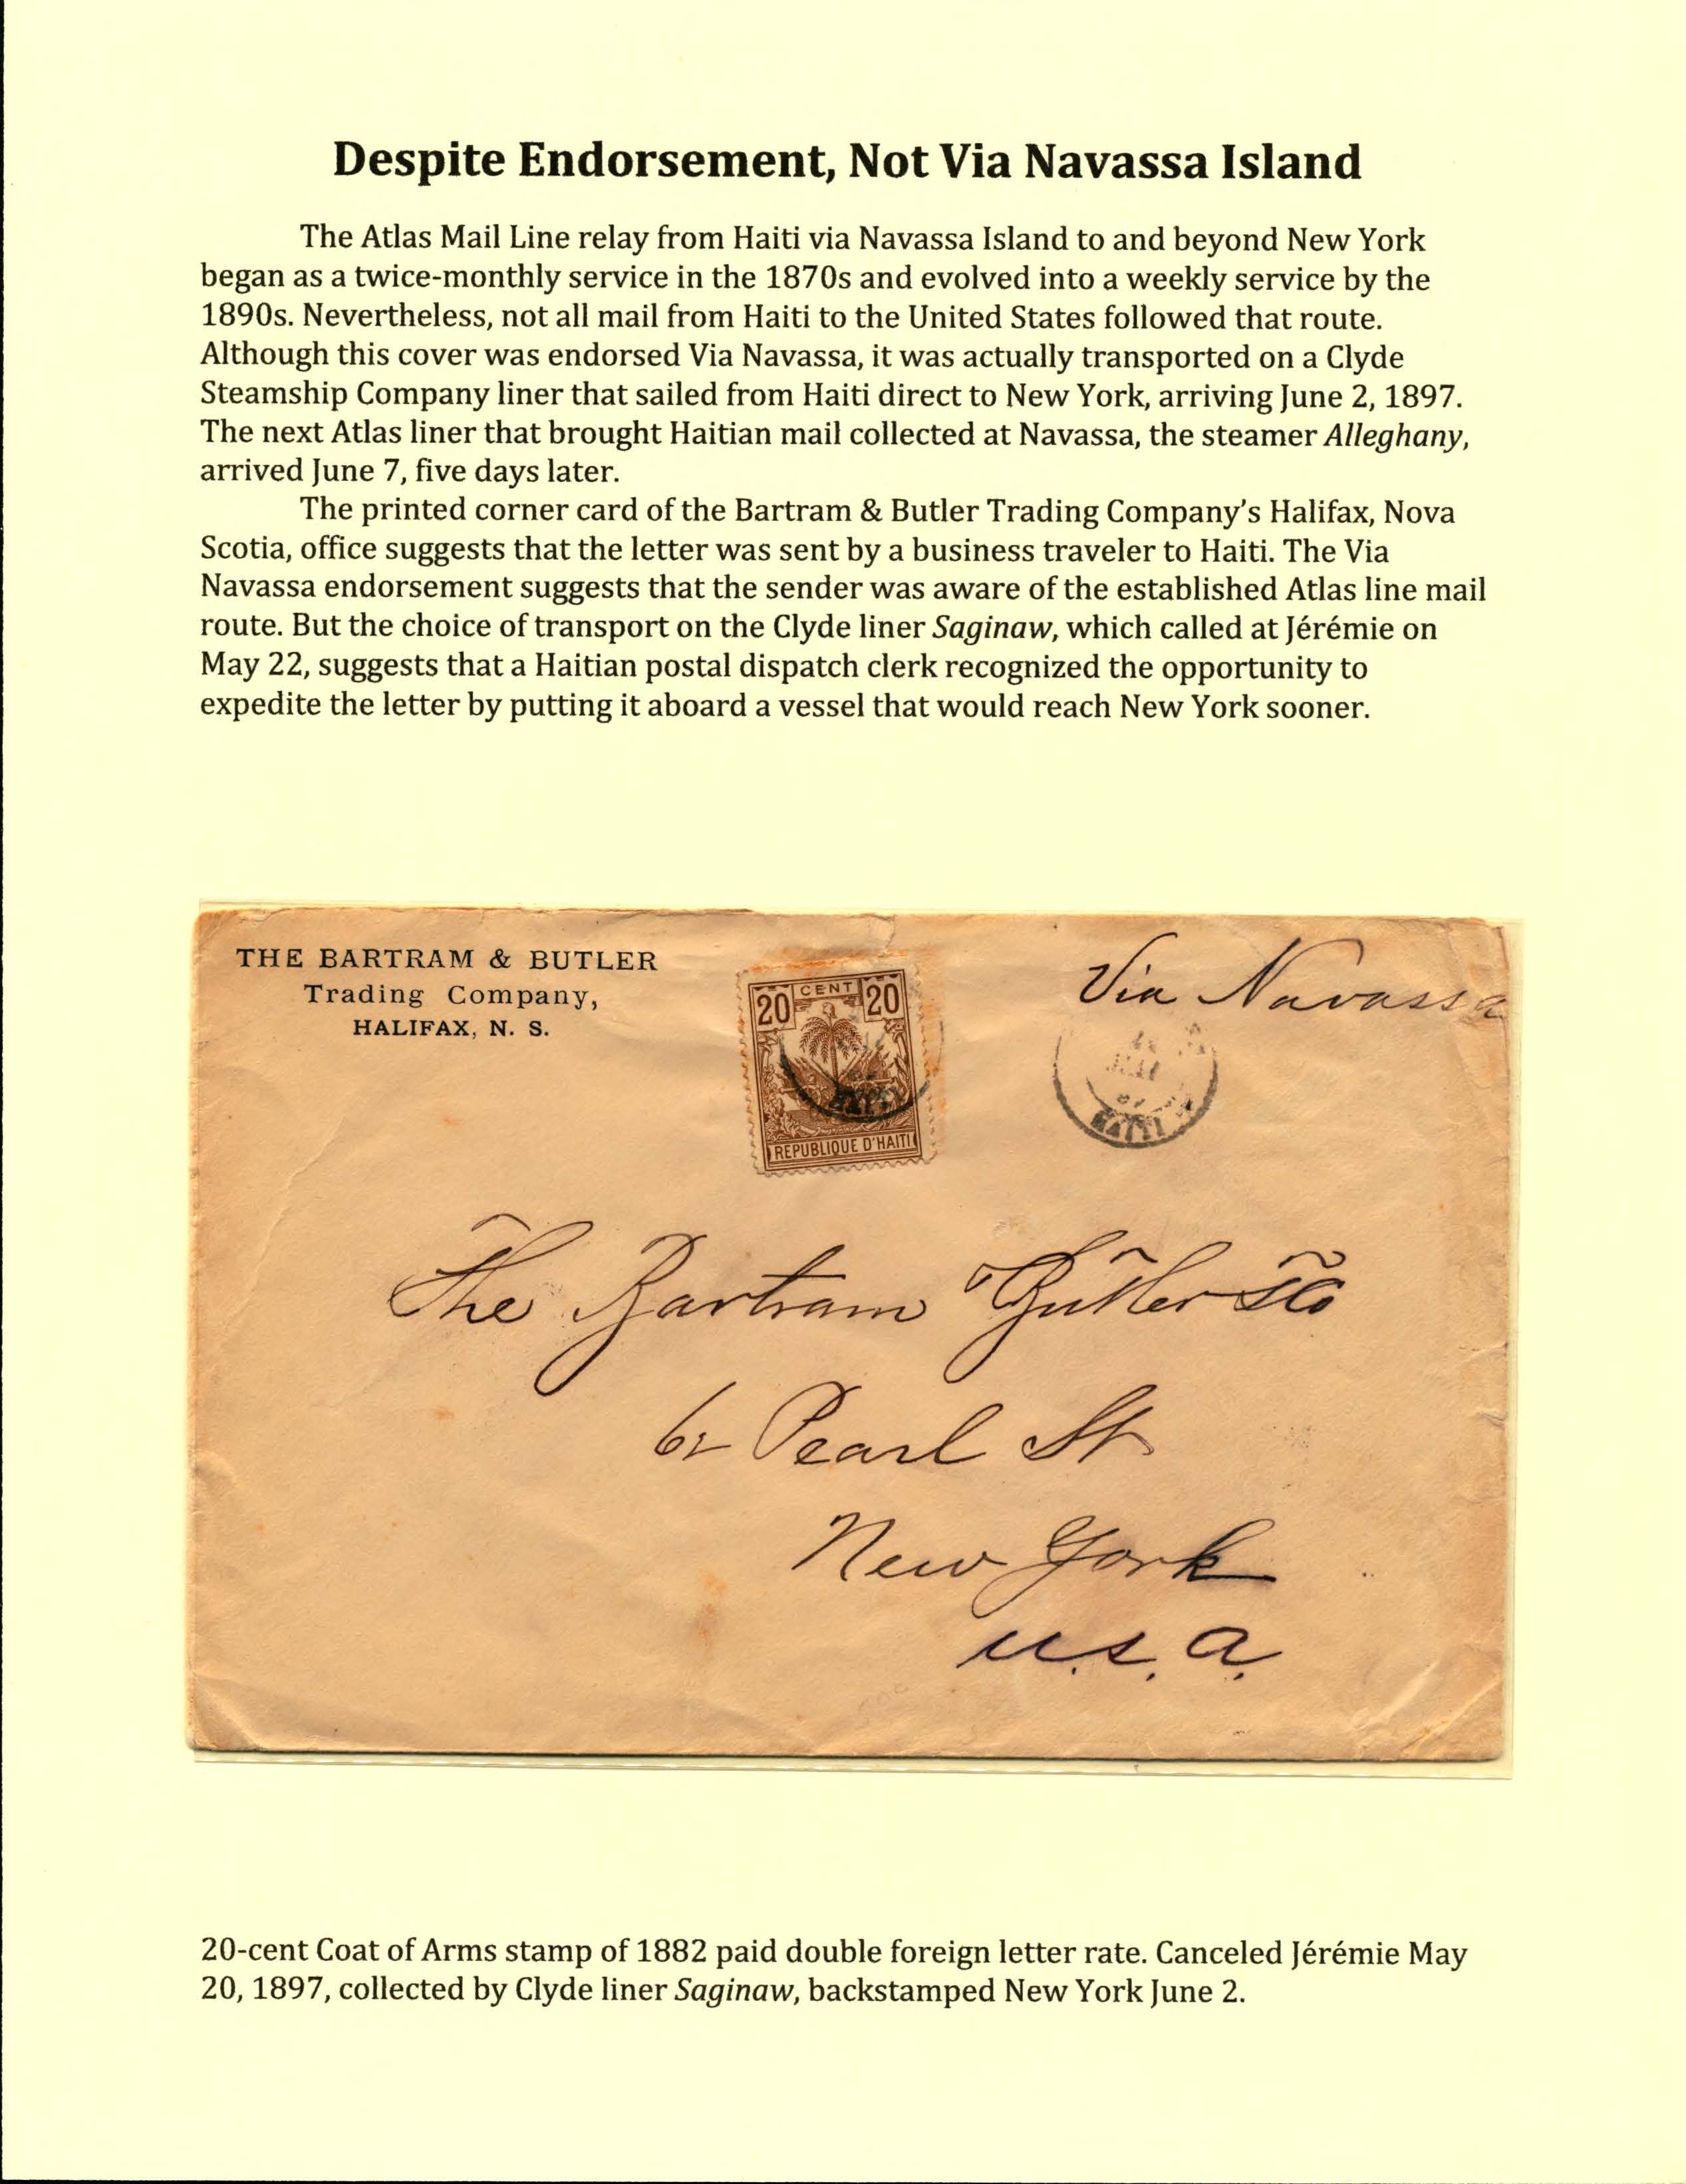 Despite Endorsement, Not Via Navassa Island
The Atlas Mail Line relay from Haiti via Navassa Island to and beyond New York
began as a twice-monthly service in the 1870s and evolved into a weekly service by the
1890s. Nevertheless, not all mail from Haiti to the United States followed that route.
Although this cover was endorsed Via Navassa, it was actually transported on a Clyde
Steamship Company liner that sailed from Haiti direct to New York, arriving June 2, 1897.
The next Atlas liner that brought Haitian mail collected at Navassa, the steamer Alleghany,
arrived June 7, five days later.
The printed corner card of the Bartram & Butler Trading Company's Halifax, Nova
Scotia, office suggests that the letter was sent by a business traveler to Haiti. The Via
Navassa endorsement suggests that the sender was aware of the established Atlas line mail
route. But the choice of transport on the Clyde liner Saginaw, which called at Jérémie on
May 22, suggests that a Haitian postal dispatch clerk recognized the opportunity to
expedite the letter by putting it aboard a vessel that would reach New York sooner.
THE BARTRAM & BUTLER
Trading Company,
HALIFAX, N. S.
20 CENT 20
REPUBLIQUE D'HAITI
Via Navassa
HAITI
The Bartram Butler
62 Pearl St
New York
U.S.A.
20-cent Coat of Arms stamp of 1882 paid double foreign letter rate. Canceled Jérémie May
20, 1897, collected by Clyde liner Saginaw, backstamped New York June 2.